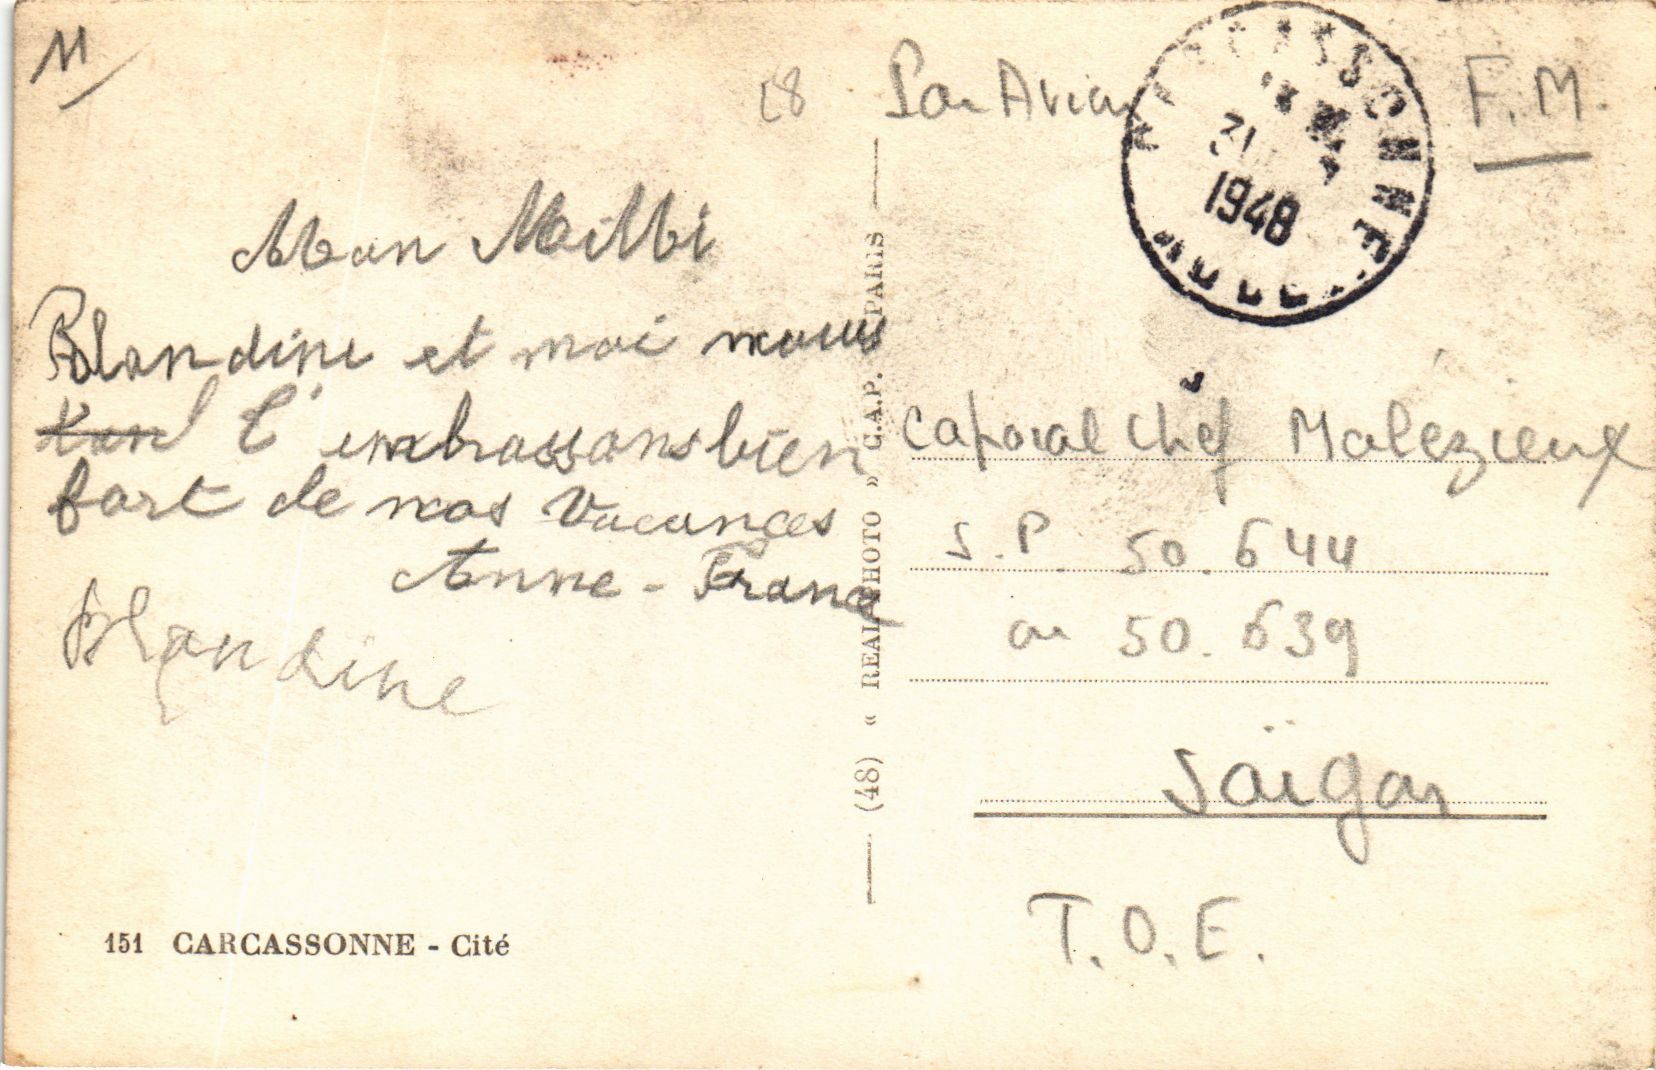 M
Mon Milbi
Blandine et moi nous
t'embrassons bien
fort de nos vacances
Anne-France
Blandine
151 CARCASSONNE - Cité
(48) « REAL-PHOTO » C.A.P. PARIS
Par Avion
F.M.
CARCASSONNE
31
1948
AUDE
Caporal Chef Malézieux
S.P. 50.644
ou 50.639
Saïgon
T.O.E.